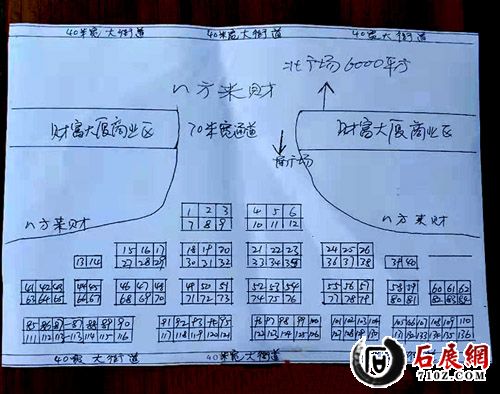 40米宽大街道 40米宽大街道 40米宽 大街道
北广场6000平方
八方来财
财富大厦商业区 70米宽通道 财富大厦商业区
南广场
八方来财 八方来财
1 2 3 4 5 6
7 8 9 10 11 12
15 16 17 18 19 20 21 22 23 24 25 26
13 14 27 28 29 30 31 32 33 34 35 36 37 38 39 40
41 42 43 44 45 46 47 48 49 50 51 52 53 54 55 56 57 58 59 60 61 62
63 64 65 66 67 68 69 70 71 72 73 74 75 76 77 78 79 80 81 82 83 84
85 86 87 88 89 90 91 92 93 94 95 96 97 98 99 100 101 102 103 104 105 106 107 108 109 110
111 112 113 114 115 116 117 118 119 120 121 122 123 124 125 126 127 128 129 130 131 132 133 134 135 136
40宽 大街道 40米宽大街道
石展网
7102.COM